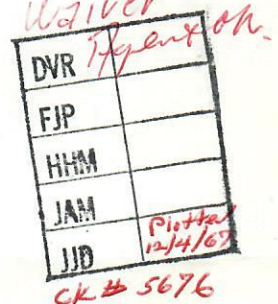 Waiver
Agent ok.
DVR
FJP
HHM
JAM
JJD
Plotted
12/4/67
CK # 5676